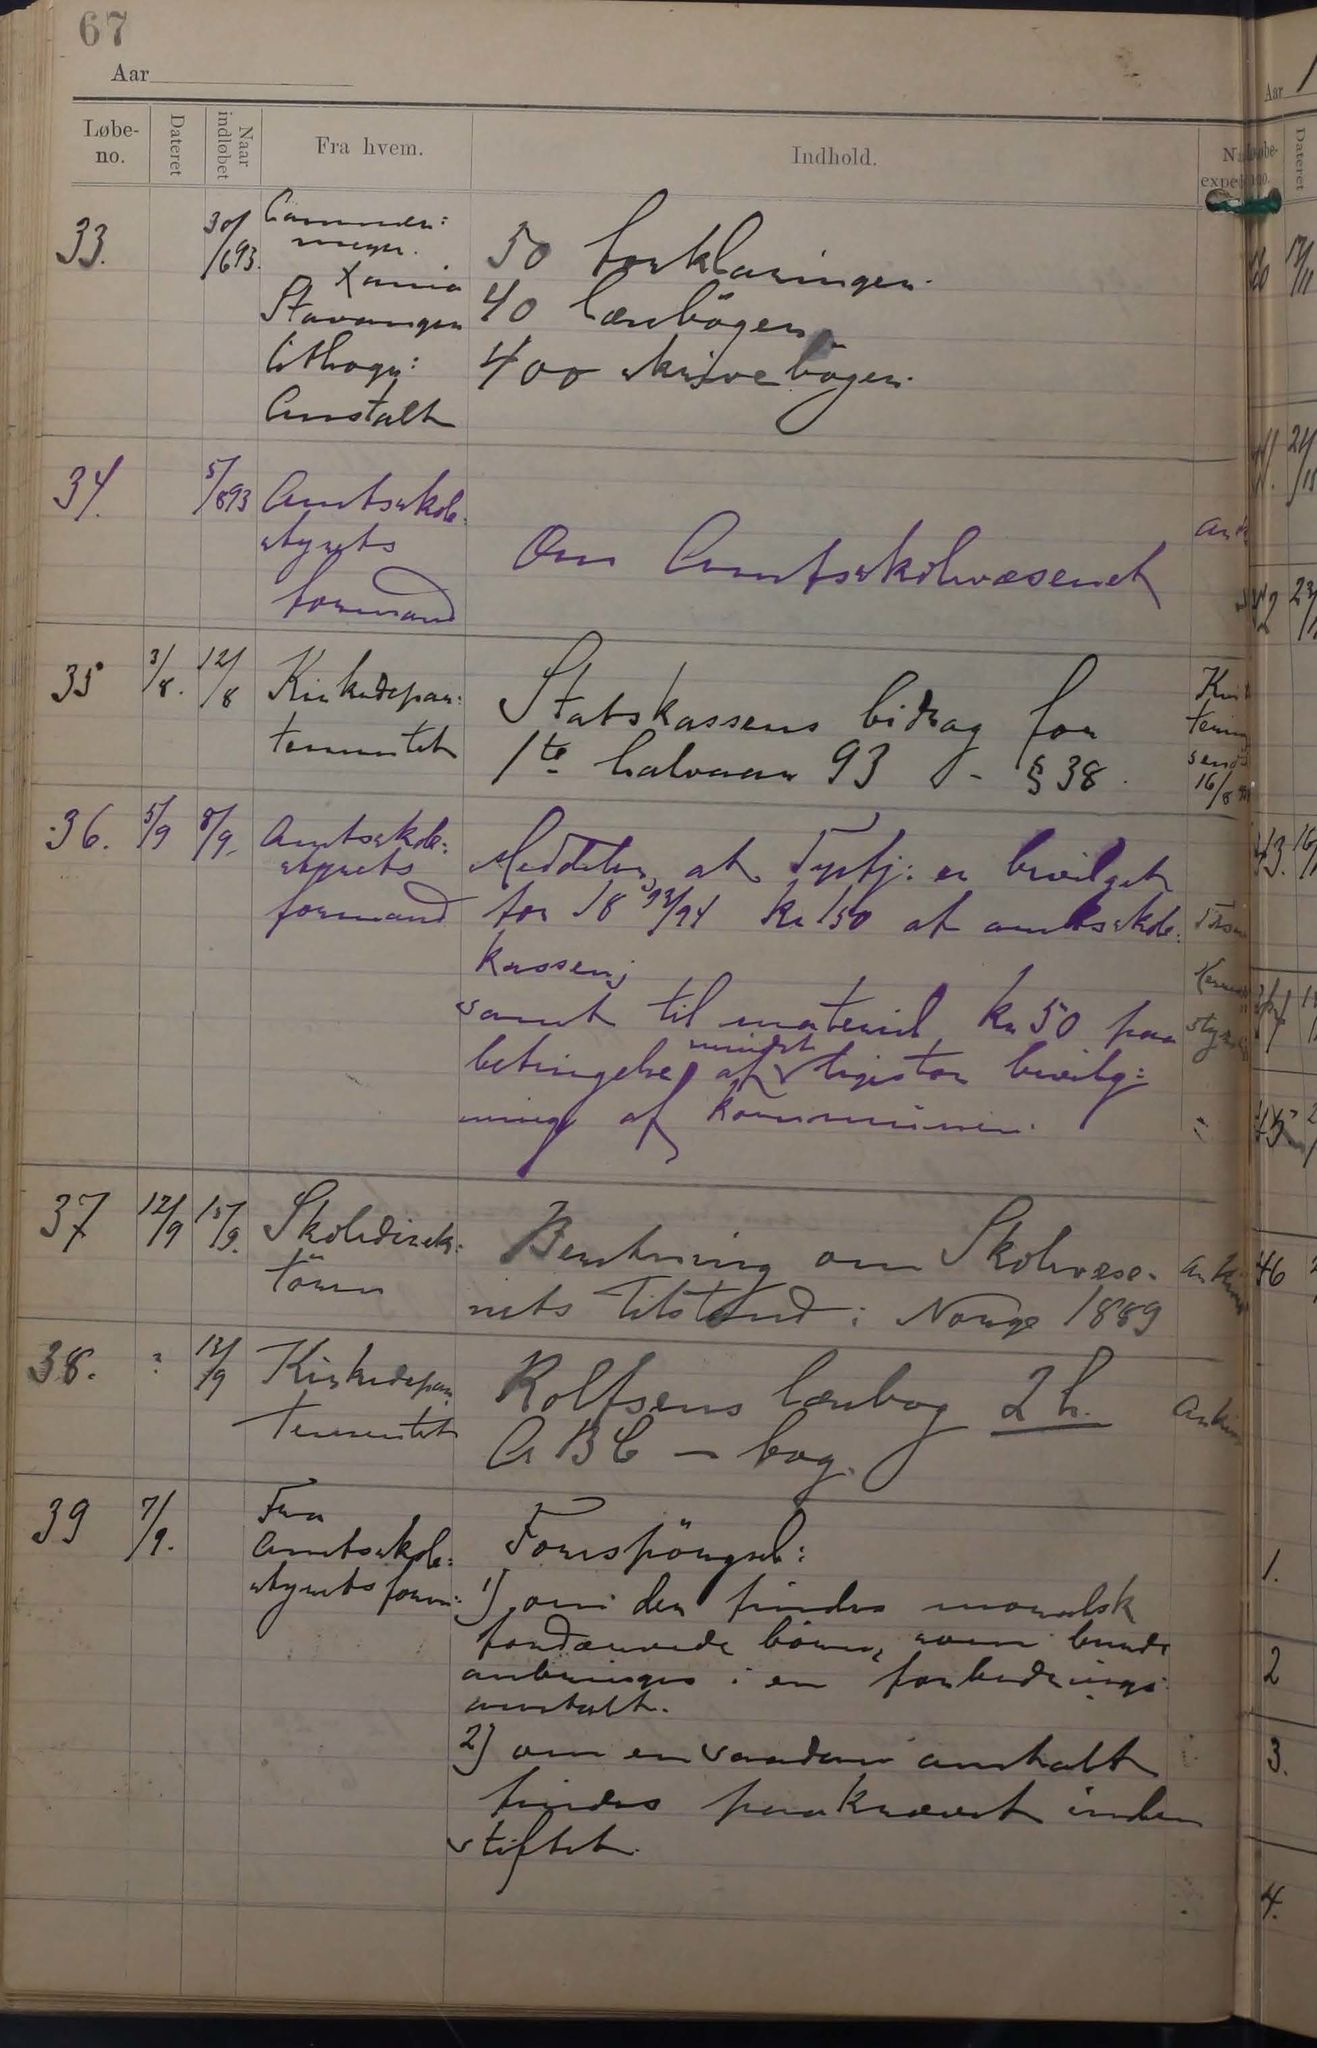 67
Aar
Løbe-no. Dateret Naar indløbet Fra hvem. Indhold.
33. 30/693. Cammer:
meyer.
Xania 50 forklaringer.
Stavanger 40 læsebøger
Lithogr: 400 skrivebøger.
Anstalt
34. 5/893 Amtsskole
styrets
formand Om Amtsskolevæsenet
35 3/8. 12/8 Kirkedepar:
tementet Statskassens bidrag for
1te halvaar 93 - § 38.
16/8
36. 5/9 8/9. Amtsskole:
styrets
formand Meddeler, at Tysfj: er bevilget
for 18 93/94 kr 150 af amtsskole:
kassen;
samt til materiel kr 50 paa
betingelse af mindst ligestor bevilg:
ning af kommunen.
37 12/9 15/9. Skoledirek:
tören Beretning om Skolevæse-
nets Tilstand i Norge 1889
38. 12/9 Kirkedepar
tementet Rolfsens læsebog 2 h.
ABC - bog.
39 7/9. Fra
Amtsskole:
styrets form: Forespörgsel:
1) om der findes moralsk
fordærvede börn, som burde
anbringes i en forbedrings:
anstalt.
2) om en saadan anstalt
findes paakrævet inden
stiftet.
Aar
Dateret
46
1.
2
3.
4.